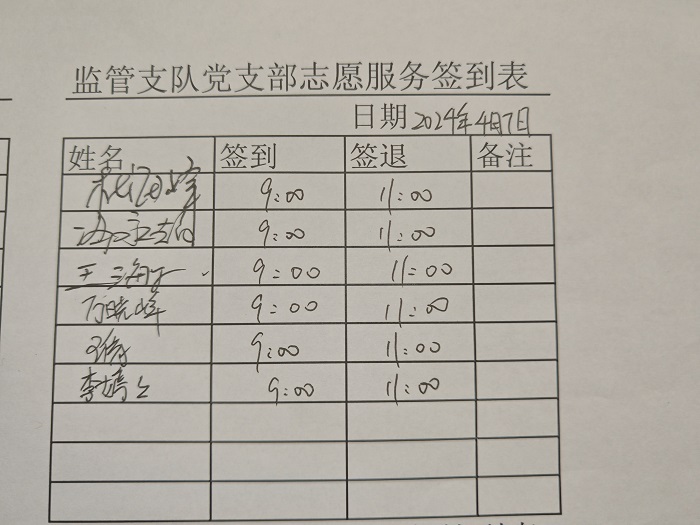 监管支队党支部志愿服务签到表
日期 2024年4月7日
姓名 签到 签退 备注
9:00 11:00
9:00 11:00
9:00 11:00
万晓峰 9:00 11:00
9:00 11:00
9:00 11:00